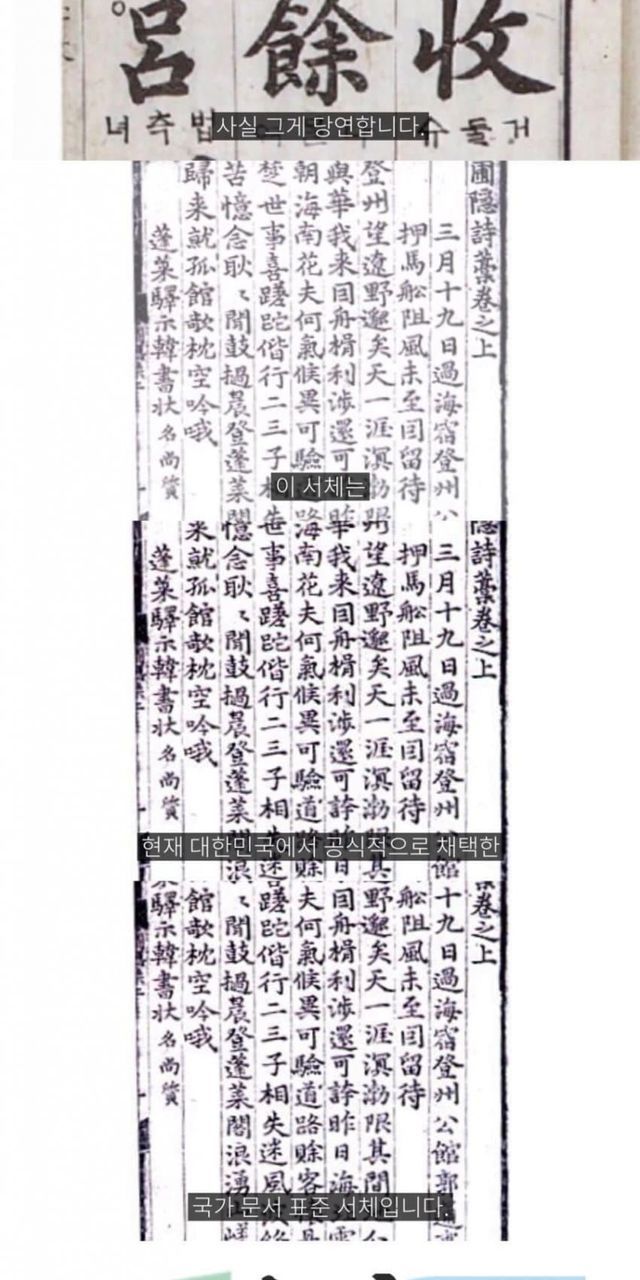 收餘呂
거둘슈 법측녀
사실 그게 당연합니다.
圃隱詩藁卷之上
三月十九日過海宿登州公
押馬舩阻風未至囙留待
登州望遼野邈矣天一涯溟渤
與華我来囙舟楫利涉還可
朝海南花夫何氣候異可驗
楚世事喜蹉跎偕行二三子
苦憶念耿〻聞鼓撾晨登蓬萊閣
歸来就孤館欹枕空吟哦
蓬萊驛示韓書狀名尚質
이 서체는
隱詩藁卷之上
三月十九日過海宿登州 館
押馬舩阻風未至囙留待
州望遼野邈矣天一涯溟渤限其
華我来囙舟楫利涉還可誇 日
海南花夫何氣候異可驗道路
世事喜蹉跎偕行二三子相 迷
憶念耿〻聞鼓撾晨登蓬萊 浪
来就孤館欹枕空吟哦
蓬萊驛示韓書狀名尚質
현재 대한민국에서 공식적으로 채택한
卷之上
十九日過海宿登州公館郭
舩阻風未至囙留待
野邈矣天一涯溟渤限其間
囙舟楫利涉還可誇昨日海
夫何氣候異可驗道路賖客
蹉跎偕行二三子相失迷風
〻聞鼓撾晨登蓬萊閣浪湧
館欹枕空吟哦
驛示韓書狀名尚質
국가 문서 표준 서체입니다.